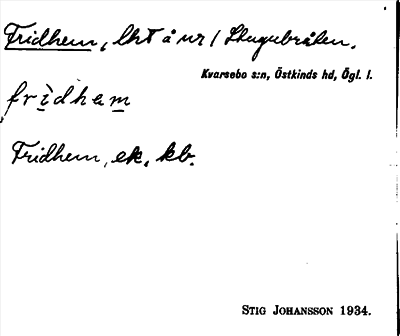 Fridhem, lht å nr 1 Stugubråten.
Kvarsebo s:n, Östkinds hd, Ögl. l.
fridhem
Fridhem, ek, kb.
STIG JOHANSSON 1934.